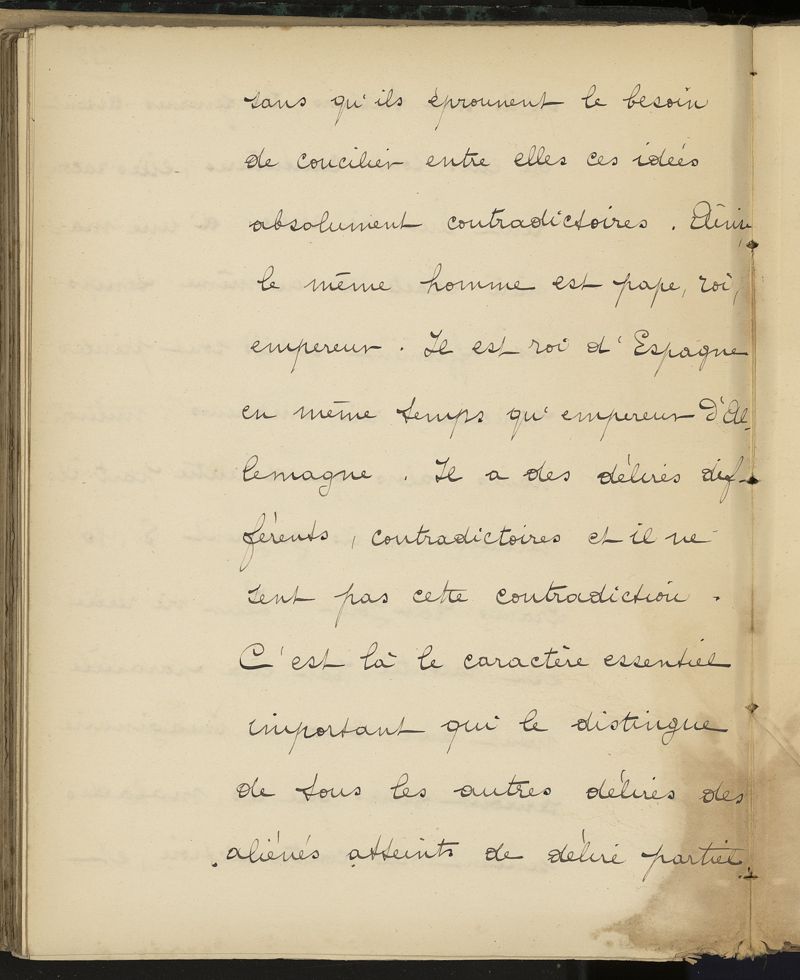 sans qu'ils éprouvent le besoin
de concilier entre elles ces idées
absolument contradictoires. Ainsi,
le même homme est pape, roi,
empereur. Il est roi d'Espagne
en même temps qu'empereur d'Al-
lemagne. Il a des délires dif-
férents, contradictoires et il ne
sent pas cette contradiction.
C'est là le caractère essentiel
important qui le distingue
de tous les autres délires des
aliénés atteints de délire partiel.